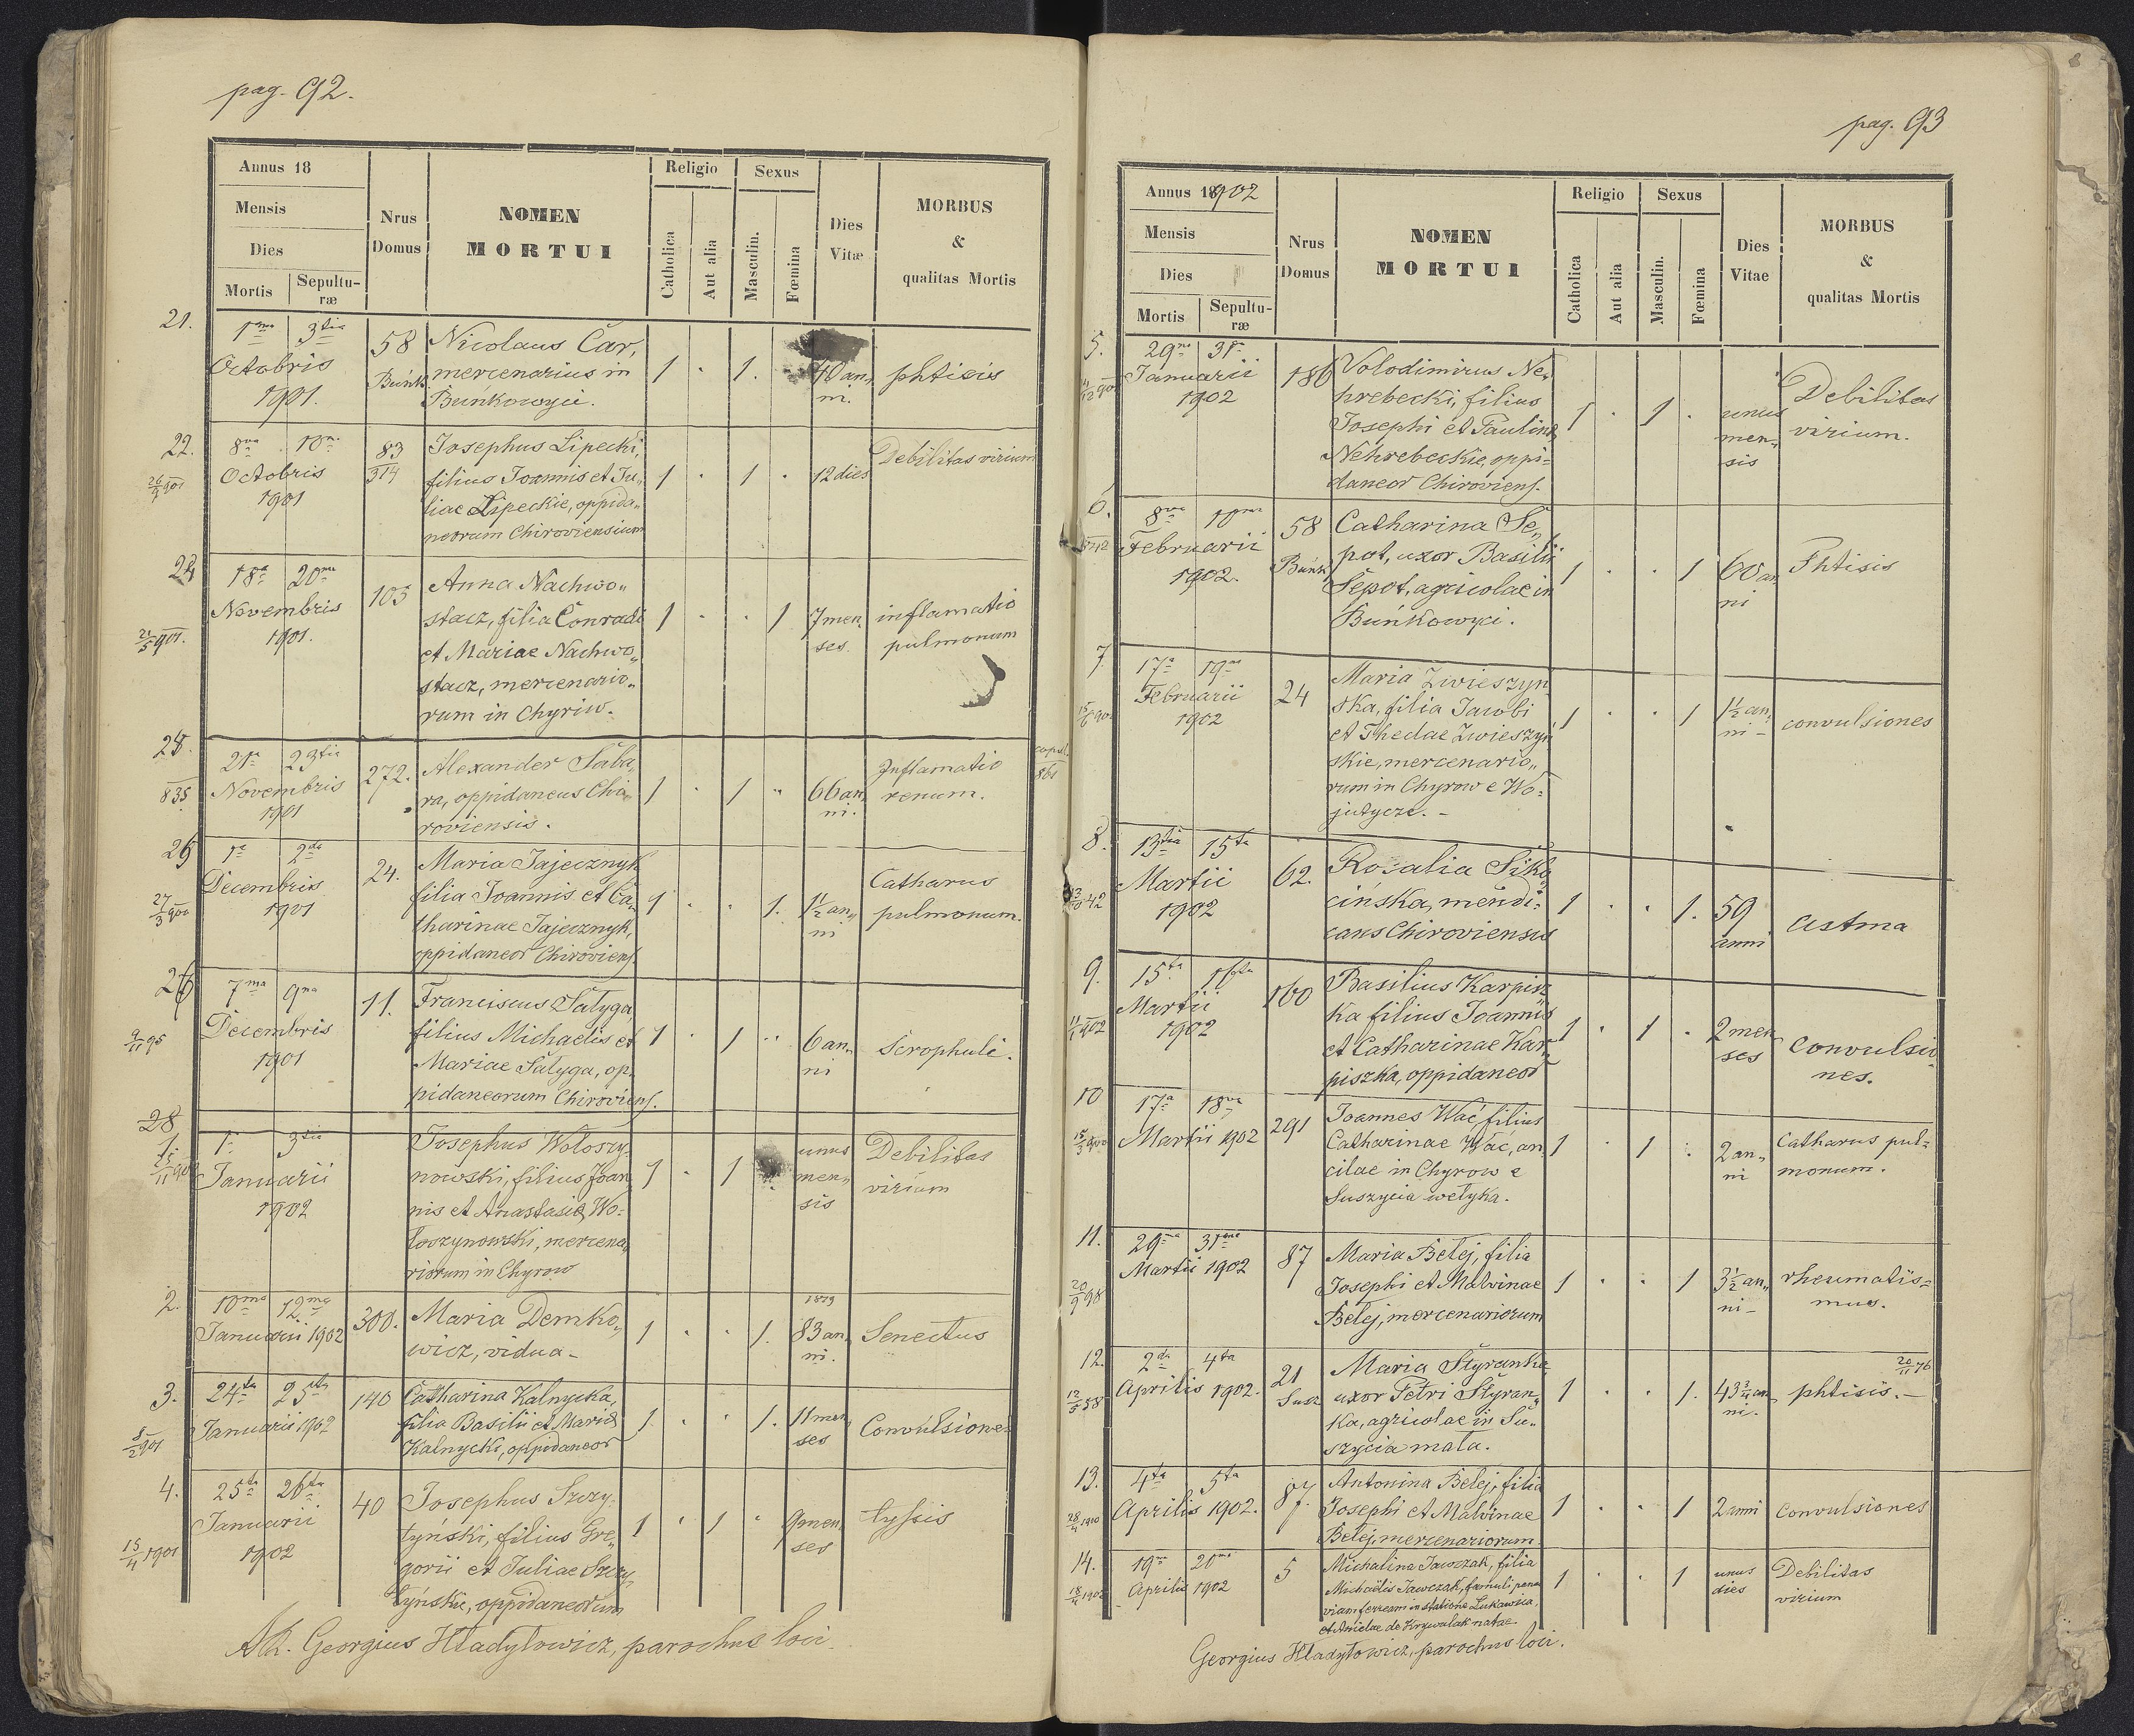 pag. 92.
Annus 18
Mensis
Dies
Mortis
Sepultu-
ræ
Nrus
Domus
NOMEN
MORTUI
Religio
Catholica
Aut alia
Sexus
Masculin.
Fœmina
Dies
Vitæ
MORBUS
&
qualitas Mortis
21.
1ma 3tia
Octobris
1901.
58
Buńk.
Nicolaus Car,
mercenarius in
Buńkowyci.
1 . 1.
40 an
phtisis
22.
8va 10ma
Octobris
1901
83
314
Josephus Lipecki,
filius Joannis et Ju„
liae Lipeckie, oppida„
neorum Chiroviensium
1 . 1 .
12 dies
Debilitas virium
18a 20ma
Novembris
1901.
21/5 901.
105
Anna Nachwo„
stacz, filia Conradi
et Mariae Nachwo„
stacz, mercenario„
rum in Chyriw.
1 . . 1
7 men„
ses.
inflamatio
pulmonum
21a 23tia
Novembris
1901
835
272.
Alexander Saba„
ra, oppidaneus Chi„
roviensis.
1 . 1 „
66 an„
ni.
Inflamatio
renum.
copul.
861
1a 2da
Decembris
1901
27/3 900
24.
Maria Jajecznyk
filia Joannis et Ca„
tharinae Jajecznyk,
oppidaneor Chiroviens.
1 . . 1.
1½ an„
ni
Catharus
pulmonum.
7ma 9na
Decembris
1901
9/11 95
11.
Franciscus Satyga,
filius Michaelis et
Mariae Satyga, op„
pidaneorum Chiroviens.
1 . 1 „
6 an„
ni
Scrophuli.
28
1.
1a 3tia
Januarii
1902
Josephus Woloszy„
nowski, filius Joan„
nis et Anastasie, Wo„
loszynowski, mercena„
riorum in Chyrow
1 . 1
unus
men„
sis
Debilitas
virium
2.
10ma 12ma
Januarii 1902
300.
Maria Demko„
wicz, vidua -
1 . . 1.
1819
83 an„
ni.
Senectus
3.
24ta 25ta
Januarii 1902
8/2 901
140
Catharina Kalnycka,
filia Basilii et Marie
Kalnycki, oppidaneor
1. . . 1.
11 men„
ses
Convulsiones
4.
25ta 26ta
Januarii
1902
15/4 1901
40
Josephus Szczy„
tyński, filius Gre„
gorii et Juliae Szczy„
tyńskie, oppidaneorum
1 . 1 .
9 men„
ses
tyssis
Georgius Hladyłowicz, parochus loci.
pag. 93
Annus 1902
Mensis
Dies
Mortis
Sepultu-
ræ
Nrus
Domus
NOMEN
MORTUI
Religio
Catholica
Aut alia
Sexus
Masculin.
Fœmina
Dies
Vitae
MORBUS
&
qualitas Mortis
5.
29na 31a
Januarii
1902
186
Volodimirus Ne„
hrebecki, filius
Josephi et Pauline
Nehrebeckie, oppi=
daneor Chiroviens.
1 . 1 .
unus
men„
sis
Debilitas
virium.
6.
8va 10ma
Februarii
1902.
58
Buńk.
Catharina Se„
pot, uxor Basilii
Sepot, agricolae in
Buńkowyci.
1 . . 1
60 an
ni
Phtisis
7.
17a 19na
Februarii
1902
24
Maria Zwieszyn„
ska, filia Jacobi
et Theclae Zwieszyń
skie, mercenario„
rum in Chyrow e Wo=
jutycze. -
1 . . 1
1½ an„
ni -
convulsiones
8.
13tia 15ta
Martii
1902
62.
Rosalia Siko„
cińska, mendi=
cans Chiroviensis
1 . . 1.
59
anni
astma
9.
15ta 16ta
Martii
1902
11/1 902
160
Basilius Karpisz„
ka filius Joannis
et Catharinae Kar„
piszka, oppidaneor
1 . 1 .
2 men
ses
convulsio
nes.
10
17a 18va
Martii 1902
15/3 900
291
Joannes Wać filius
Catharinae Wać, an„
cilae in Chyrow e
Suszycia welyka.
1 . 1 .
2 an„
ni
Catharus pul=
monum.
11.
29na 31ma
Martii 1902
20/9 98
87
Maria Belej, filia
Josephi et Malvinae
Belej, mercenariorum
1 . . 1
3½ an„
ni -
rheumatis=
mus.
12.
2da 4ta
Aprilis 1902.
12/5 58
21
Susz.
Maria Styranka
uxor Petri Styran„
ka, agricolae in Su„
szycia mala.
1 . . 1.
43¾ an
ni.
20/11 76
phtisis. -
13.
4ta 5ta
Aprilis 1902.
28/4 1900
87.
Antonina Belej, filia
Josephi et Malvinae
Belej, mercenariorum
1 . . 1
2 anni
Convulsiones
14.
19na 20ma
Aprilis 1902
18/4 1902
5
Michalina Jawczak, filia
Michaelis Jawczak, famuli penes
viam ferream in statione Lukawica,
et Anielae de Krywulak natae.
1 . . 1
unus
dies
Debilitas
virium
Georgius Hladyłowicz, parochus loci.